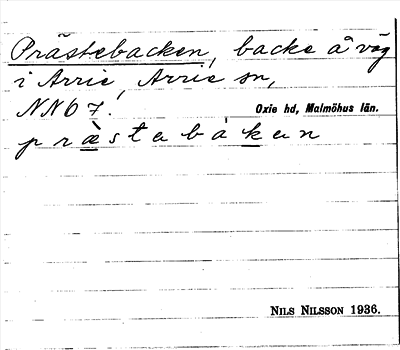 Prästebacken, backe å väg
i Arrie, Arrie sn,
NNO 7.
Oxie hd, Malmöhus län.
præ̀stebáken
NILS NILSSON 1936.